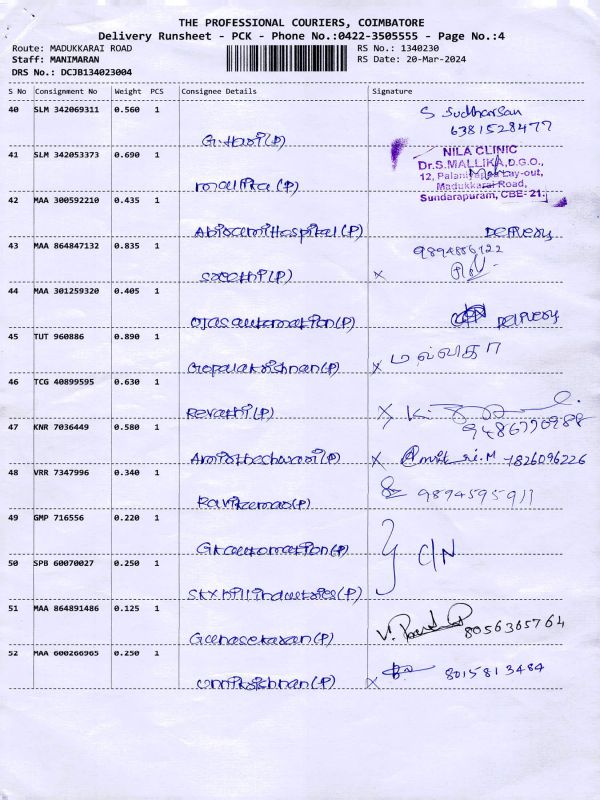 THE PROFESSIONAL COURIERS, COIMBATORE
Delivery Runsheet - PCK - Phone No.:0422-3505555 - Page No.:4
Route: MADUKKARAI ROAD
RS No.: 1340230
Staff: MANIMARAN
RS Date: 20-Mar-2024
DRS No.: DCJB134023004
S No Consignment No Weight PCS Consignee Details Signature
40 SLM 342069311 0.560 1
S Sudharsan
6381528477
G. Hari (P)
41 SLM 342053373 0.690 1
NILA CLINIC
Dr.S.MALLIKA,D.G.O.,
12, Palaniyappa Lay-out,
Madukkarai Road,
Sundarapuram, CBE- 21.
mallika (P)
42 MAA 300592210 0.435 1
Abirami Hospital (P) Delivery
43 MAA 864847132 0.835 1
9894886722
Sakthi (P) x
44 MAA 301259320 0.405 1
Ojas automation (P) Delivery
45 TUT 960886 0.890 1
Gopalakrishnan (P) x
46 TCG 40899595 0.630 1
Revathi (P) x
47 KNR 7036449 0.580 1
9486770988
(P) x 7826096226
48 VRR 7347996 0.340 1
9894595911
Ravikumar (P)
49 GMP 716556 0.220 1
GK automation (P) C/N
50 SPB 60070027 0.250 1
industries (P)
51 MAA 864891486 0.125 1
8056365764
Gunasekaran (P)
52 MAA 600266965 0.250 1
8015813484
unnikrishnan (P) x